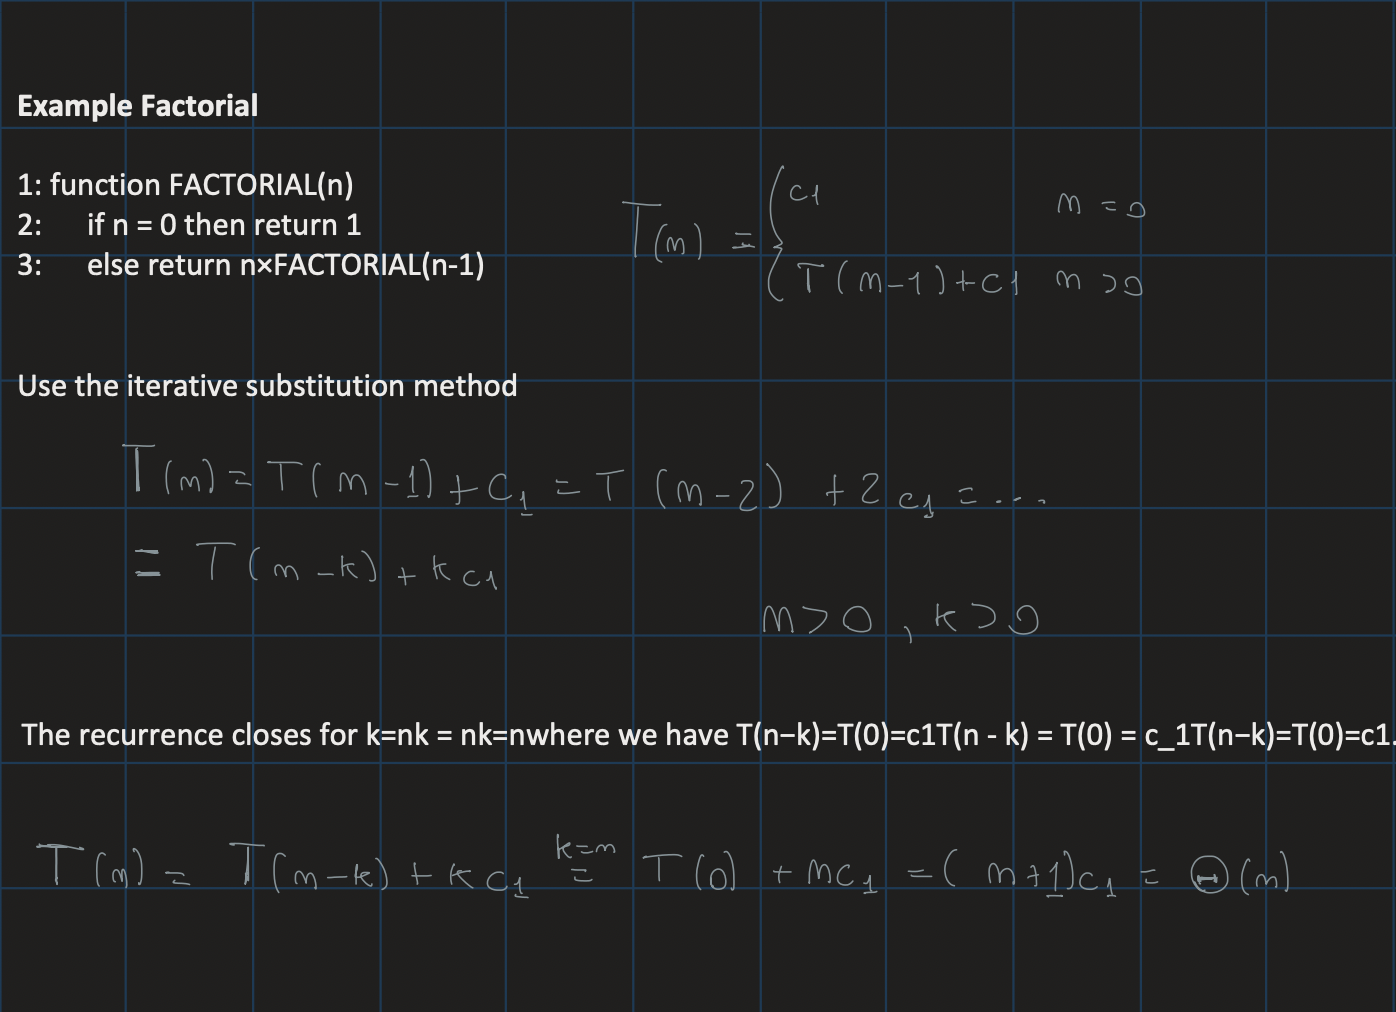 Example Factorial
1: function FACTORIAL(n)
2: if n = 0 then return 1
3: else return n×FACTORIAL(n-1)
T(n) = { c1 n = 0
T(n-1)+c1 n >0
Use the iterative substitution method
T(n) = T(n-1) + c1 = T(n-2) + 2c1 = ...
= T(n-k) + kc1
n>0, k>0
The recurrence closes for k=nk = nk=nwhere we have T(n−k)=T(0)=c1T(n - k) = T(0) = c_1T(n−k)=T(0)=c1.
k=n
T(n) = T(n-k) + kc1 = T(0) + nc1 = (n+1)c1 = Θ(n)